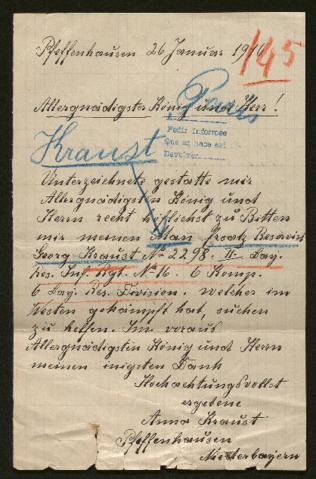 Pfeffenhausen 26 Januar 1916
145
Allergnädigster König und Herr!
Paris
Pedir informse
Que se hace así
Devolver
Kraust
Unterzeichnete gestatte mir
Allergnädigsten König und
Herrn recht höflichst zu Bitten
mir meinen Man Ersatz Reservist
Georg Kraust No 2298. II. Bay.
Res. Inf. Rgt. No 16. 6 Komp.
6 Bay. Res. Division. welcher im
Westen gekämpft hat, suchen
zu helfen. Im voraus
Allergnädigsten König und Herrn
meinen inigsten Dank
Hochachtungsvollst
ergebene
Anna Kraust
Pfeffenhausen
Niederbayern